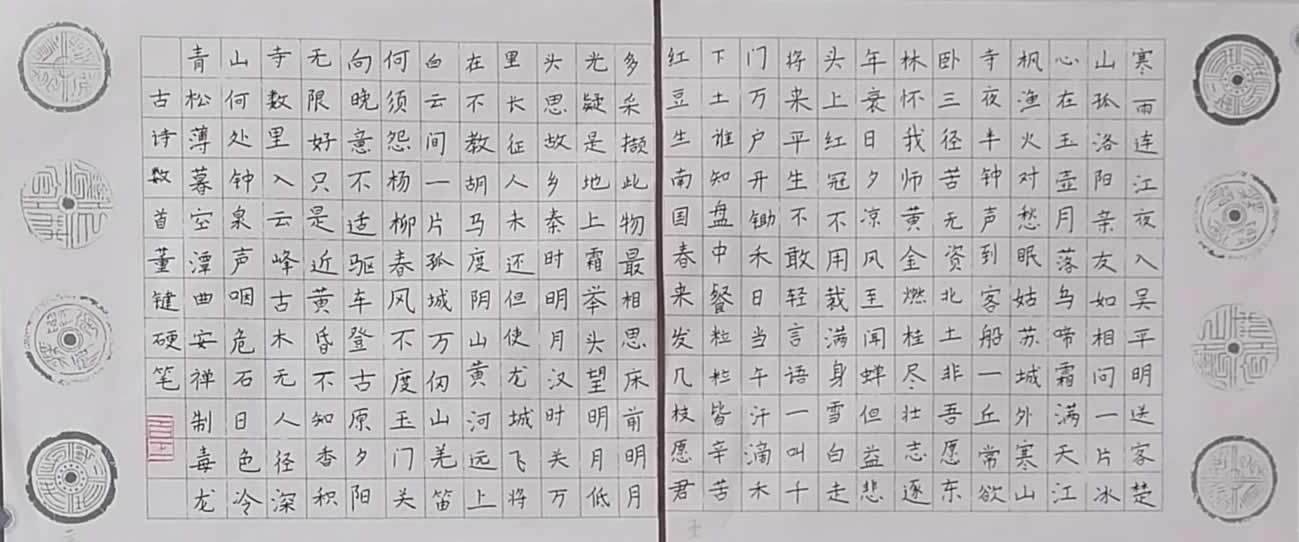 寒雨连江夜入吴平明送客楚
山孤洛阳亲友如相问一片冰
心在玉壶月落乌啼霜满天江
枫渔火对愁眠姑苏城外寒山
寺夜半钟声到客船一丘常欲
卧三径苦无资北土非吾愿东
林怀我师黄金燃桂尽壮志逐
年衰日夕凉风至闻蝉但益悲
头上红冠不用裁满身雪白走
将来平生不敢轻言语一叫千
门万户开锄禾日当午汗滴木
下土谁知盘中餐粒粒皆辛苦
红豆生南国春来发几枝愿君
多采撷此物最相思床前明月
光疑是地上霜举头望明月低
头思故乡秦时明月汉时关万
里长征人未还但使龙城飞将
在不教胡马度阴山黄河远上
白云间一片孤城万仞山羌笛
何须怨杨柳春风不度玉门关
向晚意不适驱车登古原夕阳
无限好只是近黄昏不知香积
寺数里入云峰古木无人径深
山何处钟泉声咽危石日色冷
青松薄暮空潭曲安禅制毒龙
古诗数首董键硬笔